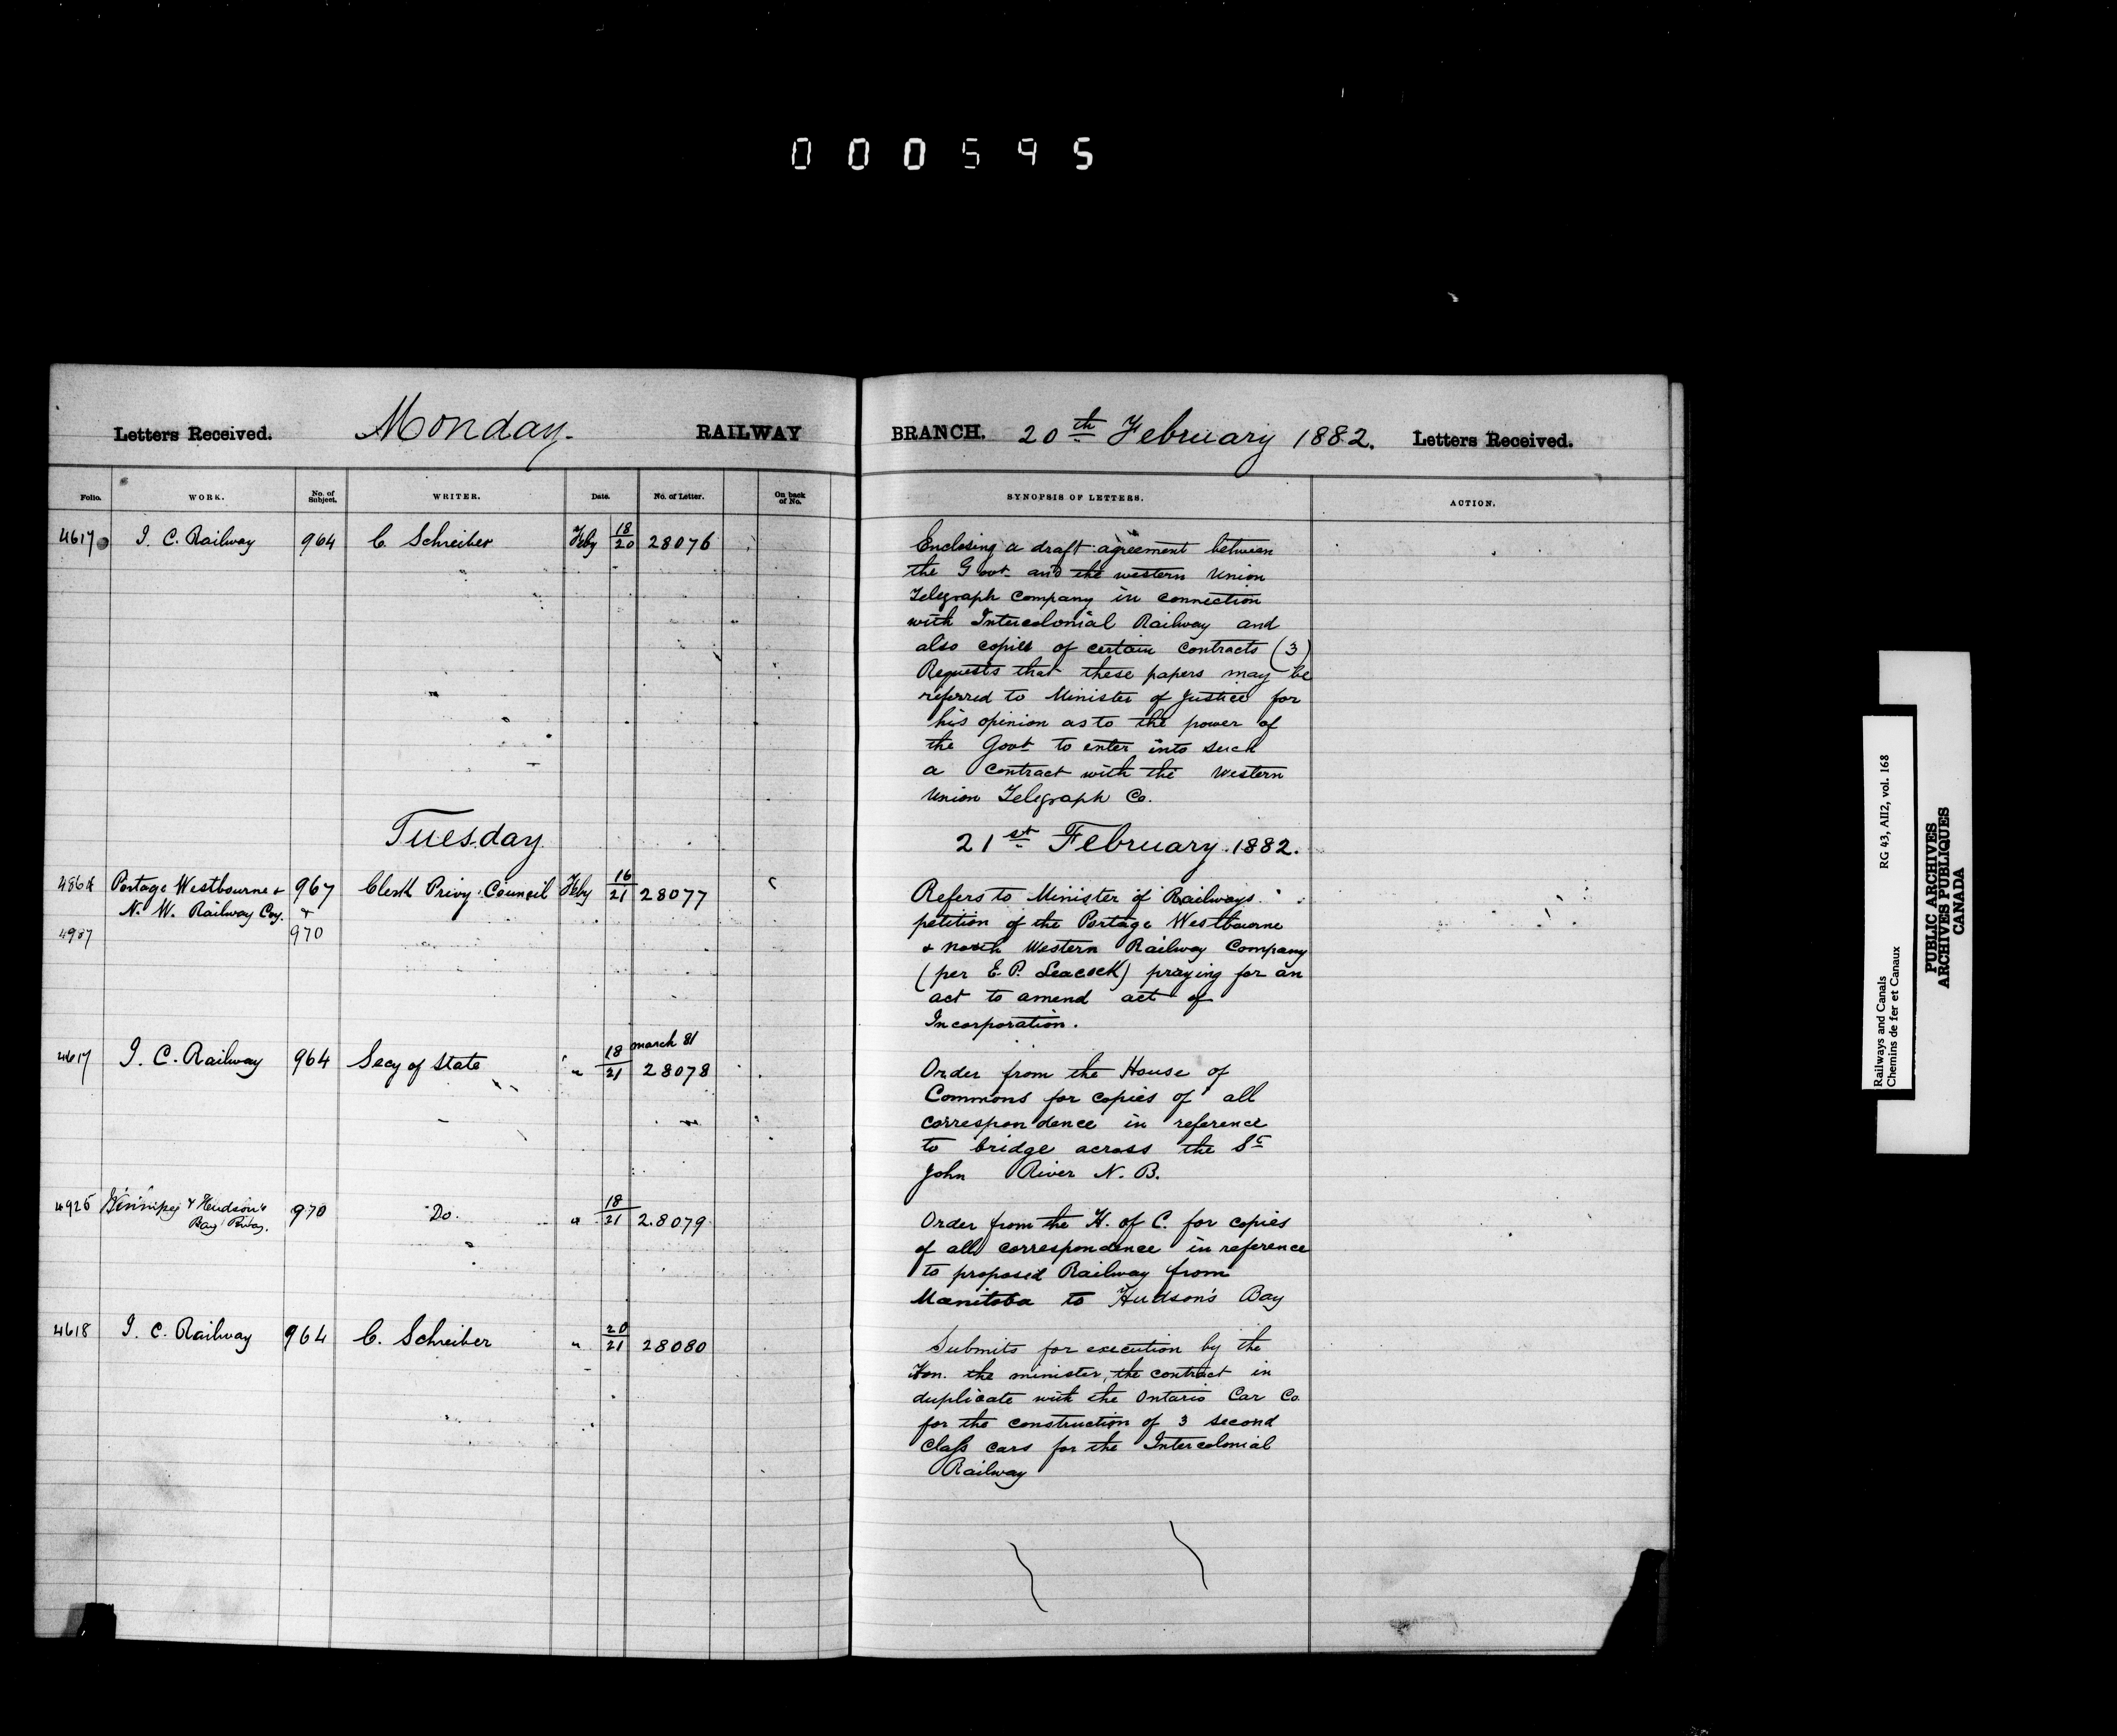 000595
Letters Received. Monday. RAILWAY BRANCH. 20th February 1882. Letters Received.
Folio. WORK. No. of Subject. WRITER. Date. No. of Letter. On back of No. SYNOPSIS OF LETTERS. ACTION.
4617 I. C. Railway 964 C. Schreiber Feby 18/20 28076
Enclosing a draft agreement between
the Govt and the western Union
Telegraph Company in connection
with Intercolonial Railway and
also copies of certain contracts (3)
Requests that these papers may be
referred to Minister of Justice for
his opinion as to the power of
the Govt to enter into such
a contract with the Western
Union Telegraph Co.
Tuesday 21st February 1882.
Portage Westbourne + 967 Clerk Privy Council Feby 16/21 28077
N. W. Railway Coy. +
970
Refers to Minister of Railways
petition of the Portage Westbourne
+ North Western Railway Company
(per E. P. Leacock) praying for an
act to amend act of
Incorporation.
4617 I. C. Railway 964 Secy of State " 18/21 march 81 28078
Order from the House of
Commons for copies of all
correspondence in reference
to bridge across the St
John River N. B.
4925 Winnipeg + Hudson's 970 Do. " 18/21 28079
Bay Rway.
Order from the H. of C. for copies
of all correspondence in reference
to proposed Railway from
Manitoba to Hudson's Bay
4618 I. C. Railway 964 C. Schreiber " 20/21 28080
Submits for execution by the
Hon. the minister, the contract in
duplicate with the Ontario Car Co.
for the construction of 3 second
Class cars for the Intercolonial
Railway
Railways and Canals RG 43, AII2, vol. 168
Chemins de fer et Canaux
PUBLIC ARCHIVES
ARCHIVES PUBLIQUES
CANADA